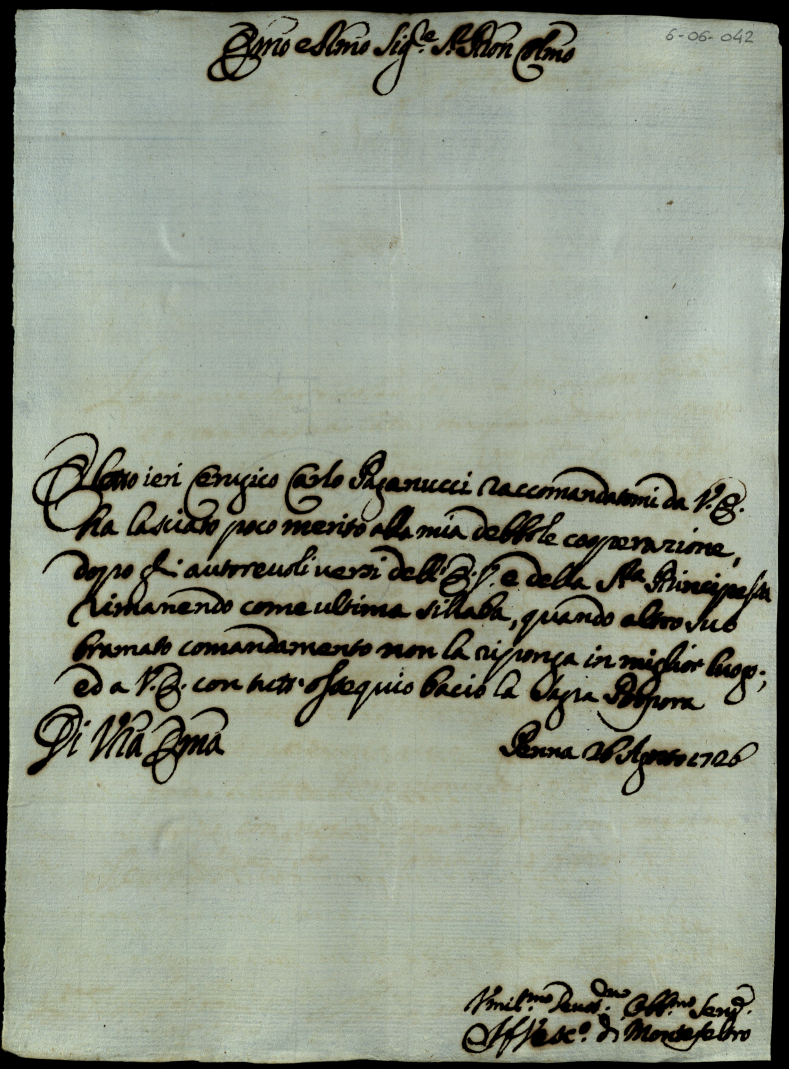 6-06-042
Emo e Rmo Sig.re Sr Pron Colmo
Eletto ieri Cerusico Carlo Paganucci raccomandatomi da V. E.
ha lasciato poco merito alla mia debbole cooperazione,
dopo gl'autorevoli versi dell'E. S. e della Sra Principessa
rimanendo come ultima sillaba, quando altro suo
bramato comandamento non la riponga in miglior luogo;
ed a V. E. con tutt'ossequio bacio la Sagra Porpora
Di Vra Ema
Penna 26 Agosto 1726
Vmil.mo Deuot.mo Obb.mo Serv.
Vesc.o di Montefeltro